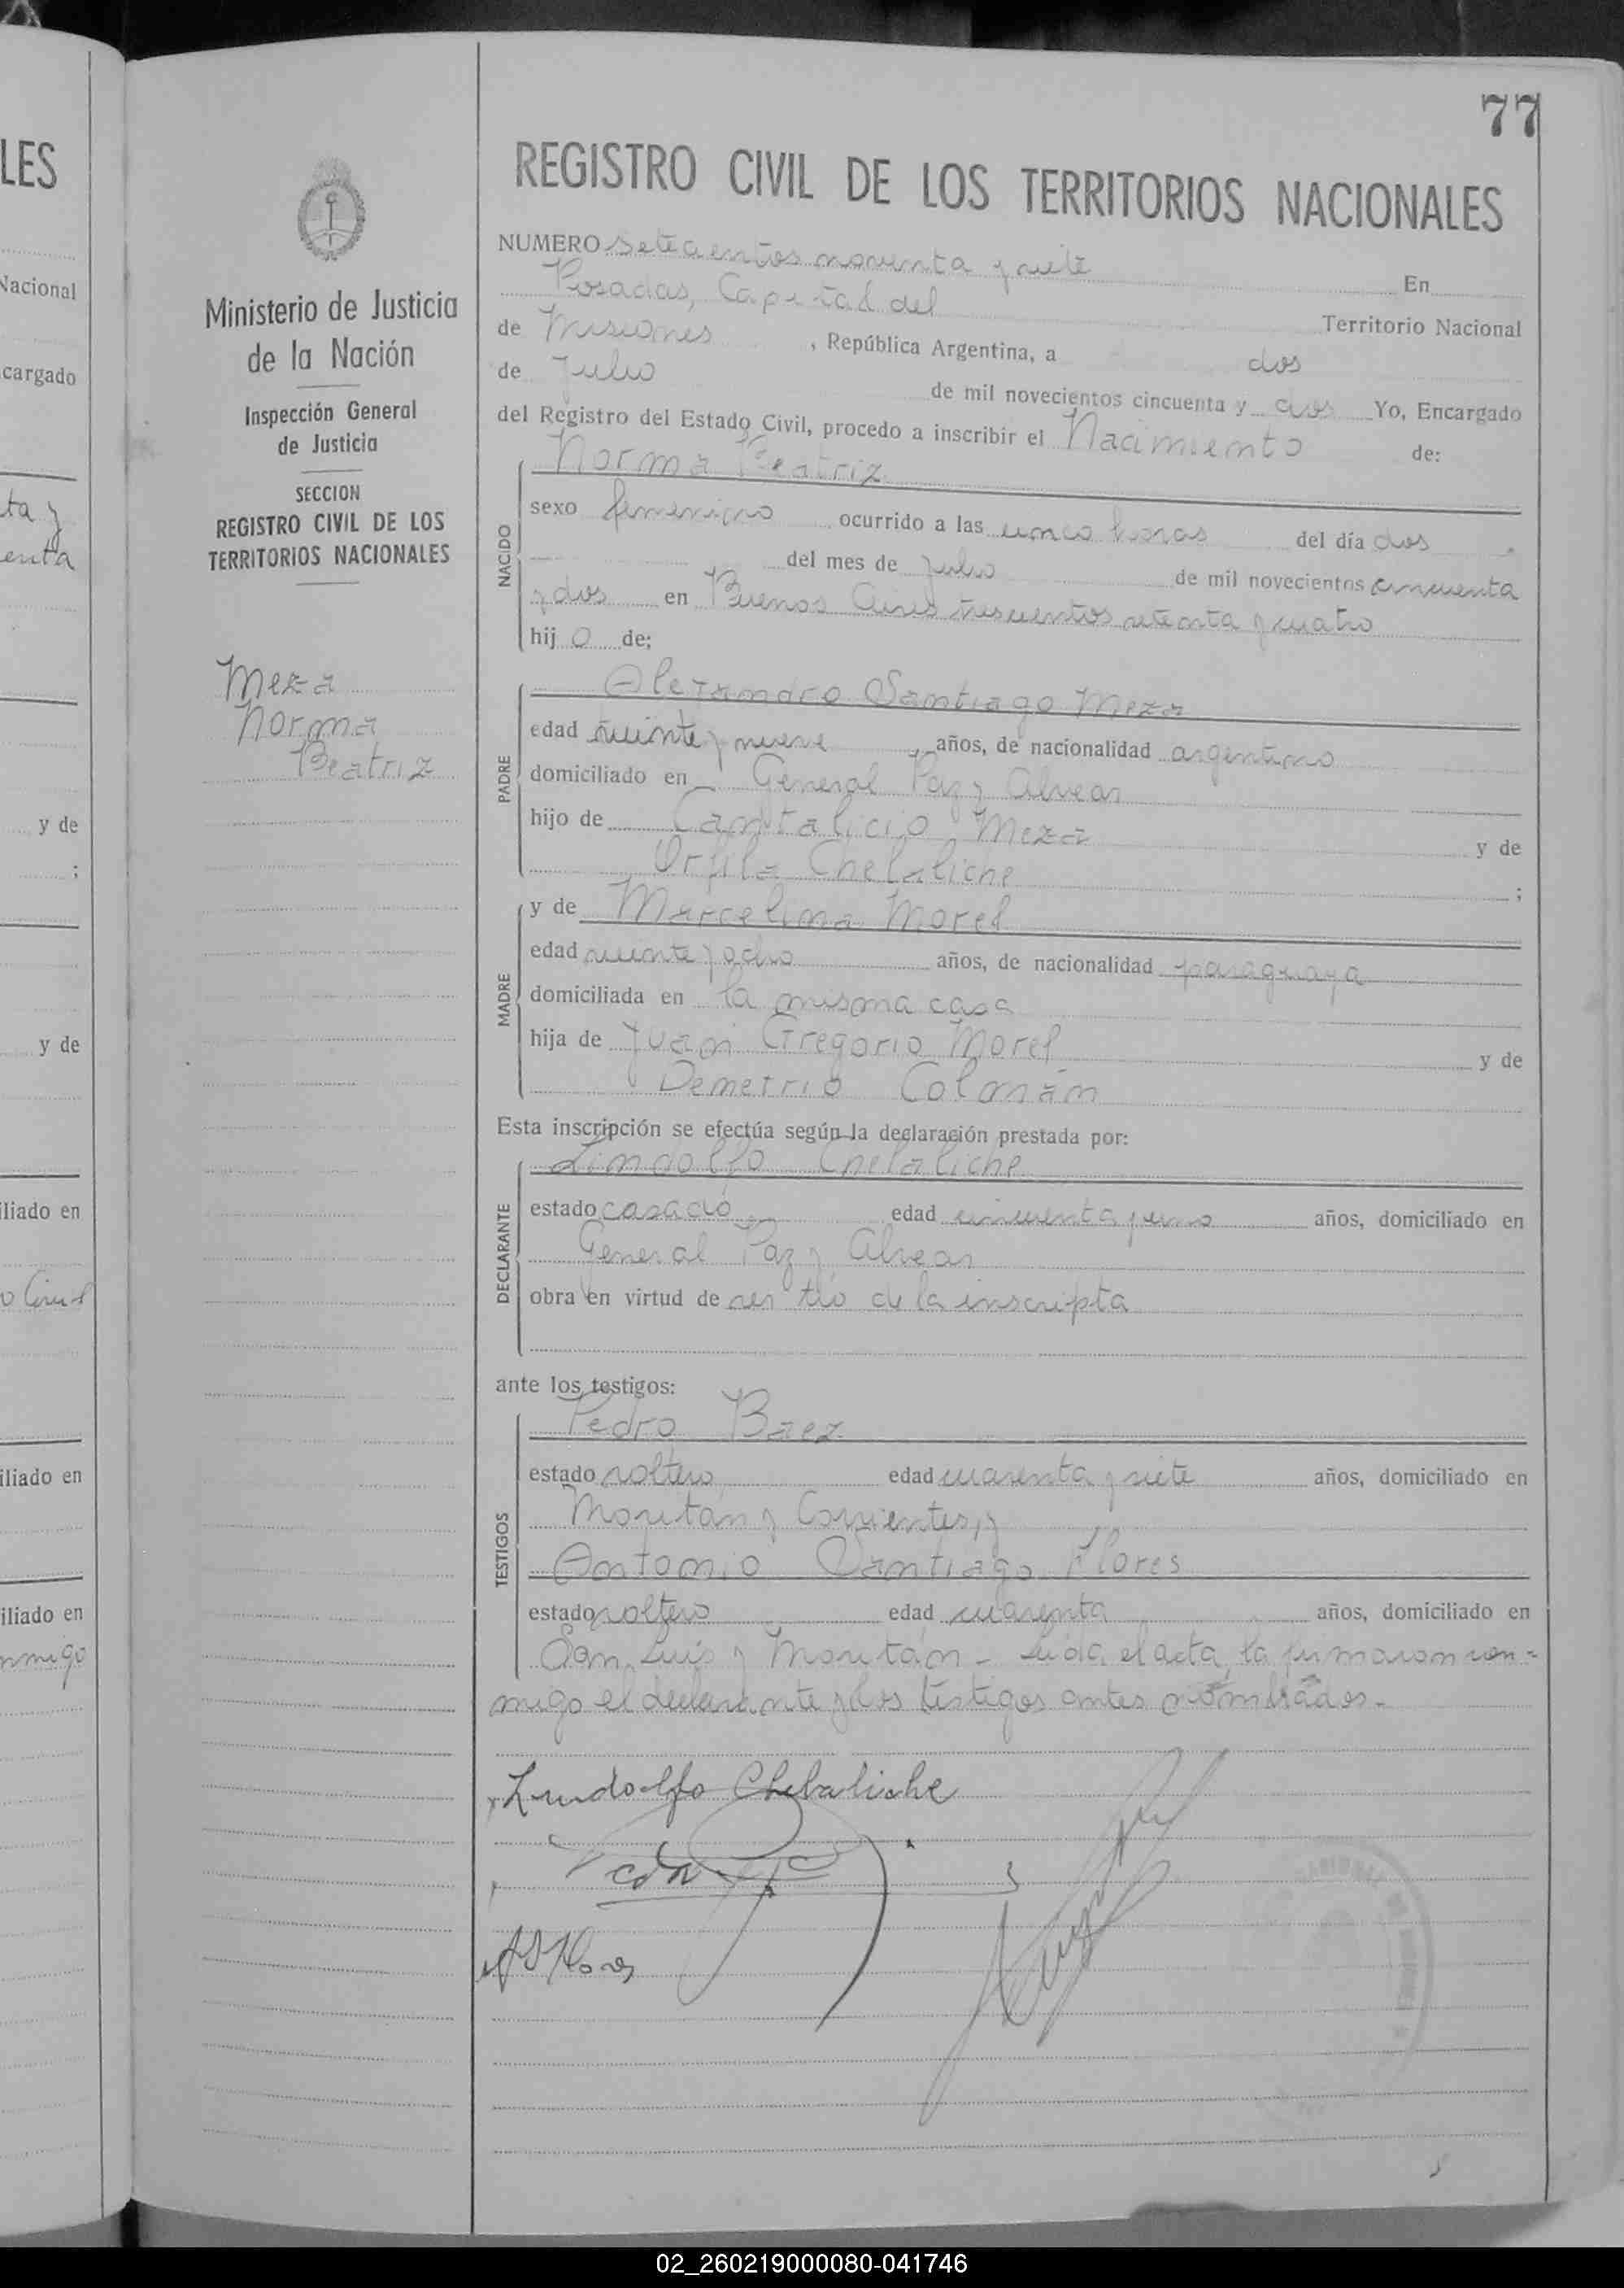 LES
Nacional
cargado
ta y
enta
y de
;
y de
iliado en
o Civil
iliado en
iliado en
nmigo
Ministerio de Justicia
de la Nación
Inspección General
de Justicia
SECCION
REGISTRO CIVIL DE LOS
TERRITORIOS NACIONALES
Meza
Norma
Beatriz
77
REGISTRO CIVIL DE LOS TERRITORIOS NACIONALES
NUMERO Setecientos noventa y siete
En
Posadas, Capital del
Territorio Nacional
de Misiones , República Argentina, a dos
de Julio de mil novecientos cincuenta y dos Yo, Encargado
del Registro del Estado Civil, procedo a inscribir el Nacimiento de:
Norma Beatriz
NACIDO
sexo femenino ocurrido a las cinco horas del día dos
del mes de Julio de mil novecientos cincuenta
y dos en Buenos Aires trescientos setenta y cuatro
hij o de;
Alejandro Santiago Meza
PADRE
edad veinte y nueve años, de nacionalidad argentino
domiciliado en General Paz y Alvear
hijo de Cantalicio Meza y de
Orfila Chebaliche ;
y de Marcelina Morel
MADRE
edad veinte y ocho años, de nacionalidad paraguaya
domiciliada en la misma casa
hija de Juan Gregorio Morel y de
Demetria Colmán
Esta inscripción se efectúa según la declaración prestada por:
Lindolfo Chebaliche
DECLARANTE
estado casado edad cincuenta y uno años, domiciliado en
General Paz y Alvear
obra en virtud de ser tío de la inscripta
ante los testigos:
Pedro Baez
TESTIGOS
estado soltero edad cuarenta y siete años, domiciliado en
Moritán y Corrientes, y
Antonio Santiago Flores
estado soltero edad cuarenta años, domiciliado en
San Luis y Moritán - Leída el acta, la firmaron con-
migo el declarante y los testigos antes nombrados.-
Lindolfo Chebaliche
A S Flores
02_260219000080-041746